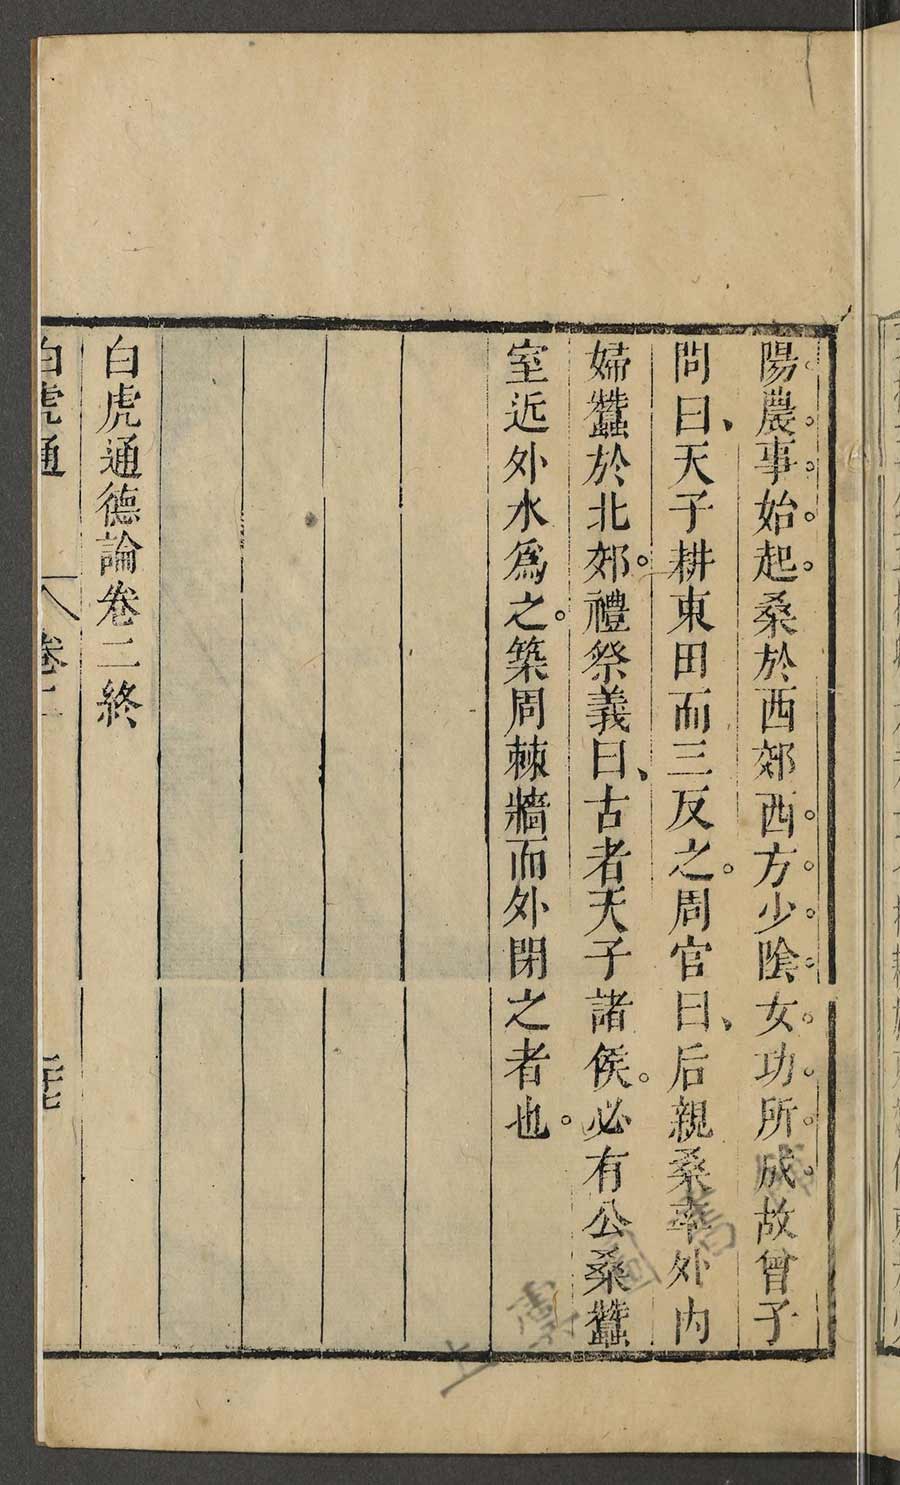 陽農事始起桑於西郊西方少陰女功所成故曾子
問曰、天子耕東田而三反之。周官曰、后親桑率外內
婦蠶於北郊。禮祭義曰、古者天子諸侯。必有公桑蠶
室近外水爲之。築周棘牆而外閉之者也。
白虎通德論卷二終
白虎通 卷二